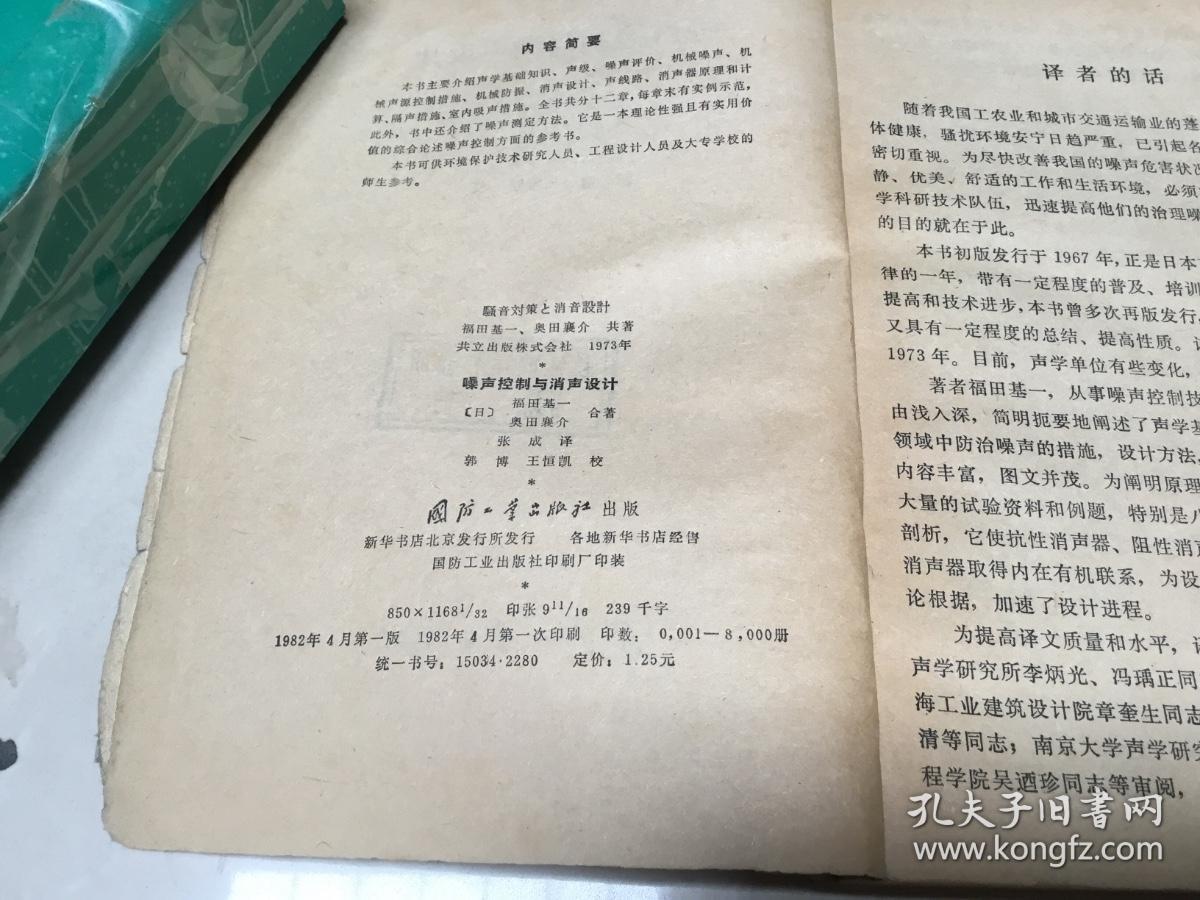 内容简要
本书主要介绍声学基础知识、声级、噪声评价、机械噪声、机
械声源控制措施、机械防振、消声设计、声线路、消声器原理和计
算、隔声措施、室内吸声措施。全书共分十二章，每章末有实例示范，
此外，书中还介绍了噪声测定方法。它是一本理论性强且有实用价
值的综合论述噪声控制方面的参考书。
本书可供环境保护技术研究人员、工程设计人员及大专学校的
师生参考。
騒音対策と消音設計
福田基一、奥田襄介 共著
共立出版株式会社 1973年
*
噪声控制与消声设计
福田基一
〔日〕 合著
奥田襄介
张成译
郭博 王恒凯 校
*
国防工业出版社 出版
新华书店北京发行所发行 各地新华书店经售
国防工业出版社印刷厂印装
*
850×1168 1/32 印张 9 11/16 239 千字
1982年4月第一版 1982年4月第一次印刷 印数：0,001—8,000册
统一书号：15034·2280 定价：1.25元
译者的话
随着我国工农业和城市交通运输业的蓬
体健康，骚扰环境安宁日趋严重，已引起各
密切重视。为尽快改善我国的噪声危害状况
静、优美、舒适的工作和生活环境，必须
学科研技术队伍，迅速提高他们的治理噪
的目的就在于此。
本书初版发行于 1967 年，正是日本
律的一年，带有一定程度的普及、培训
提高和技术进步，本书曾多次再版发行，
又具有一定程度的总结、提高性质。
1973 年。目前，声学单位有些变化，
著者福田基一，从事噪声控制技
由浅入深，简明扼要地阐述了声学基
领域中防治噪声的措施，设计方法，
内容丰富，图文并茂。为阐明原理
大量的试验资料和例题，特别是八
剖析，它使抗性消声器、阻性消声
消声器取得内在有机联系，为设
论根据，加速了设计进程。
为提高译文质量和水平，译
声学研究所李炳光、冯瑀正同
海工业建筑设计院章奎生同志
清等同志；南京大学声学研究
程学院吴迺珍同志等审阅，
孔夫子旧书网
www.kongfz.com